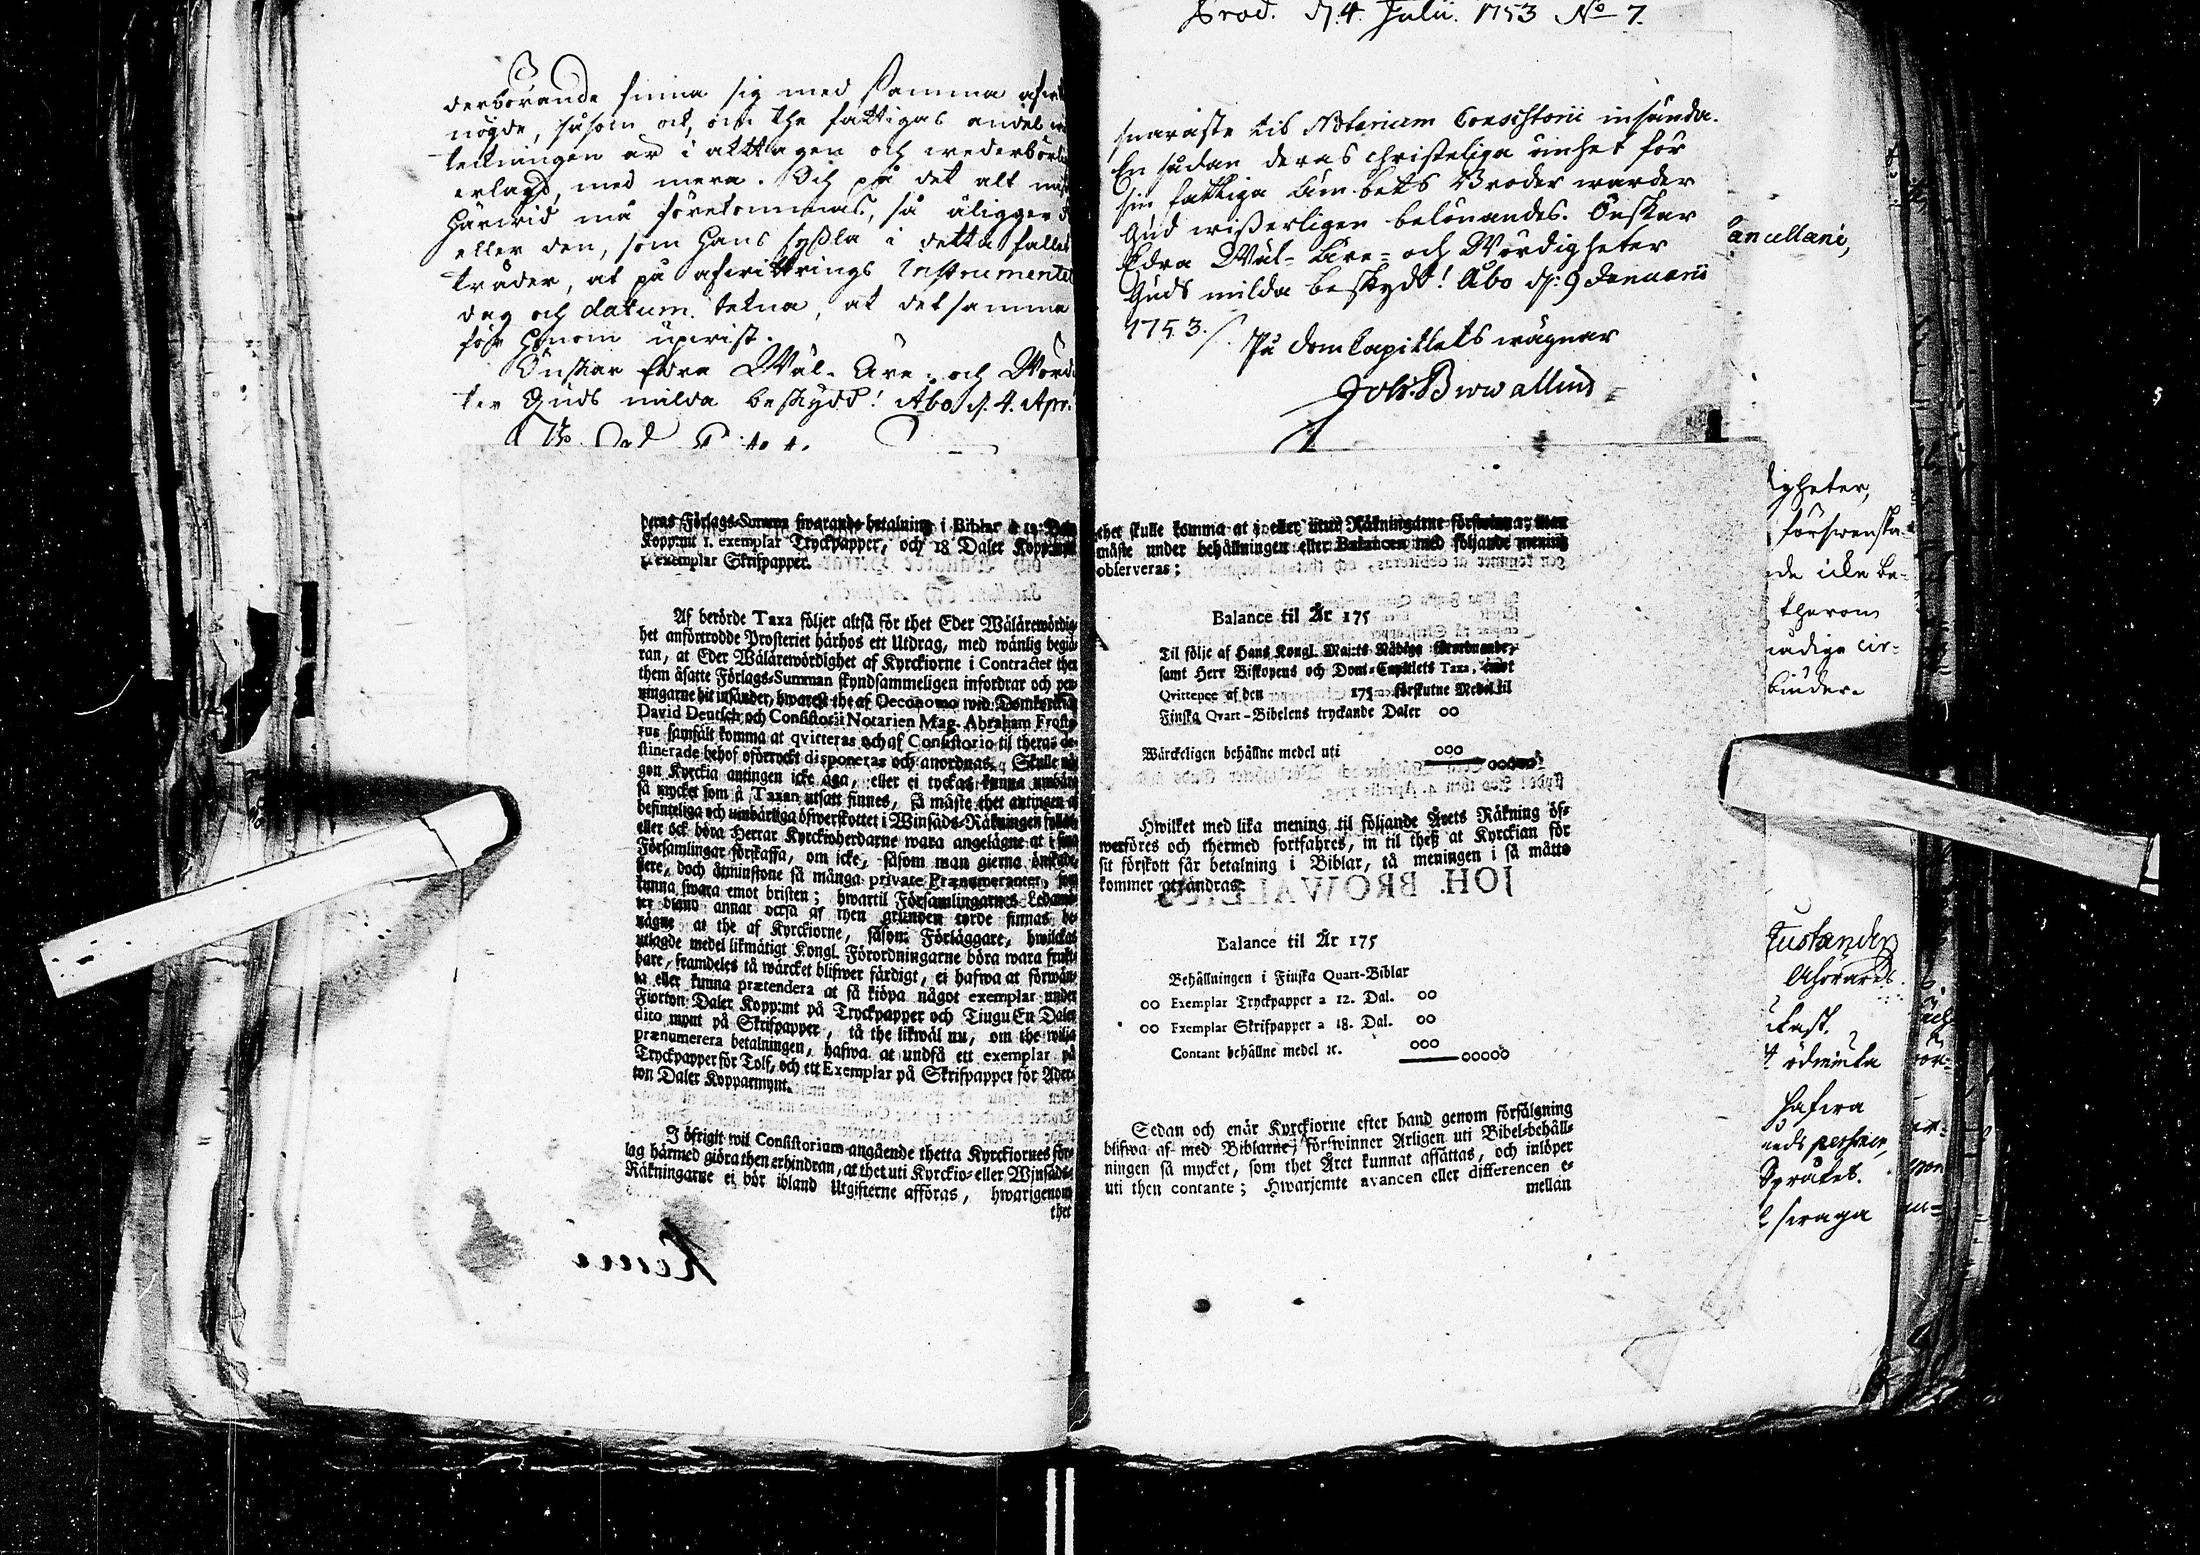 derbörande finna sig med samma afwit
nögde, såsom ock, om the fattigas andel
teckningen är i akttagen och wederbörl
erlagd, med mera. Och på det alt
härwid må förekommas, så åligger
eller den, som hans syßla i detta fallet
träder, at på afwittrings Instrumentet
dag och datum tekna, at det samma
för honom upwist.
Önskar Edra Wäl-Äre- och Wörd
ter Guds milda beskydd! Åbo d. 4. Apr.
deras Förlags-Summa swarande betalning i Biblar à 12. Dal.
Kopp:mt 1. exemplar Tryckpapper, och 18 Daler Kopp:mt
1. exemplar Skrifpapper.
Af berörde Taxa följer altså för thet Eder Wälärewördig-
het anförtrodde Prosteriet härhos ett Utdrag, med wänlig begiä-
ran, at Eder Wälärewördighet af Kyrckiorne i Contractet then
them åsatte Förlags-Summan skyndsammeligen infordrar och pen-
ningarne hit insänder, hwarest the af Oeconomo wid Domkyrckian
David Deutsch och Consistorii Notarien Mag. Abraham Froste-
rus samfält komma at qvitteras och af Consistorio til theras de-
stinerade behof oförryckt disponeras och anordnas. Skulle nå-
gon Kyrckia antingen icke äga, eller ei tyckas kunna umbära
så mycket som å Taxan utsatt finnes, så måste thet antingen af
befinteliga och umbärliga öfwerskottet i Winsäds-Räkningen fyllas
eller ock böra Herrar Kyrckioherdarne wara angelägne at i sina
Församlingar förskaffa, om icke, såsom man gierna önskade,
flere, doch åtminstone så många private Prænumeranter, som
kunna swara emot bristen; hwartil Församlingarnes Ledamö-
ter bland annat också af then grunden torde finnas be-
nägne, at the af Kyrckiorne, såsom Förläggare, hwilckas
utlagde medel likmätigt Kongl. Förordningarne böra wara frukt-
bare, framdeles tå wärcket blifwer färdigt, ei hafwa at förwän-
ta eller kunna prætendera at få kiöpa något exemplar under
Fiorton Daler Kopp:mt på Tryckpapper och Tiugu En Daler
dito mynt på Skrifpapper, tå the likwäl nu, om the wilja
prænumerera betalningen, hafwa at undfå ett exemplar på
Tryckpapper för Tolf, och ett Exemplar på Skrifpapper för Ader-
ton Daler Kopparmynt.
I öfrigit wil Consistorium angående thetta Kyrckiornes för-
lag härmed giöra then erhindran, at thet uti Kyrckio- eller Winsäds-
Räkningarne ei bör ibland Utgifterne afföras, hwarigenom
thet
Prod. d. 4. Julii. 1753 No 7.
snaraste til Notarium Consistorii insända.
En sådan deras christeliga ömhet för
sin fattiga Ämbets Broder warder
Gud wißerligen belönandes. Önskar
Edra Wäl-Äre- och Wördigheter
Guds milda beskydd! Åbo d: 9 Januarii
1753.
På DomCapitlets wägnar
Joh: Browallius
thet skulle komma at i eller utur Räkningarne förswinna; utan
måste under behållningen eller Balancen med följande mening
observeras;
Balance til År 175
Til följe af Hans Kongl. Maj:ts Nådige förordnande,
samt Herr Biskopens och Dom-Capitlets Taxa, emot
Qvittence af den 175 förskutne Medel til
Finska Qvart-Bibelens tryckande Daler 00
Wärckeligen behållne medel uti 000
00000
Hwilket med lika mening til följande Årets Räkning öf-
werföres och thermed fortfahres, in til theß at Kyrckian för
sit förskott får betalning i Biblar, tå meningen i så måtto
kommer at ändras.
JOH. BROWALLIUS
Balance til År 175
Behållningen i Finska Quart-Biblar
00 Exemplar Tryckpapper a 12. Dal. 00
00 Exemplar Skrifpapper a 18. Dal. 00
Contant behållne medel ꝛc. 000
00000
Sedan och enär Kyrckiorne efter hand genom försälgning
blifwa af med Biblarne, förswinner Årligen uti Bibel-behåll-
ningen så mycket, som thet Året kunnat afsättas, och inlöper
uti then contante; Hwarjemte avancen eller differencen e-
mellan
ancellani,
igheter,
förswenska
nde icke be-
therom
nådige cir-
binder
ödmiuka
hafwa
Språket.
swaga